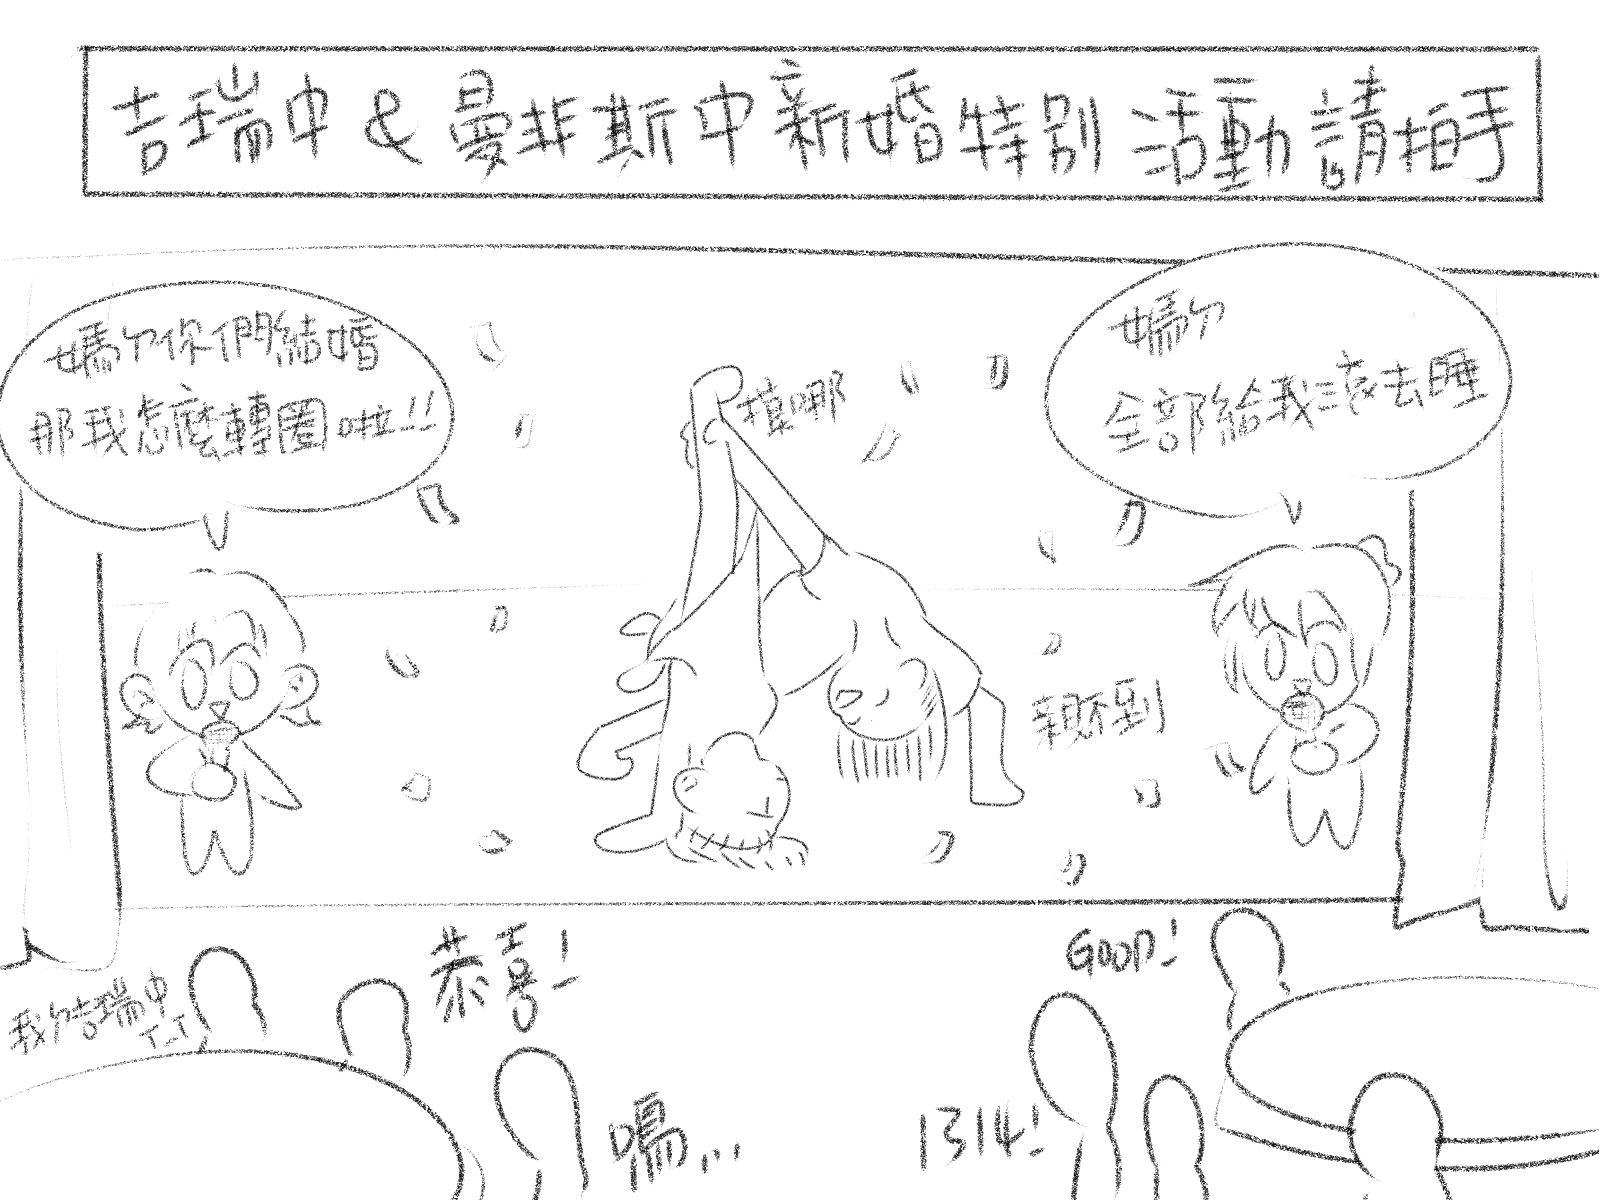 吉瑞中 & 曼非斯中新婚特別活動請拍手
媽ㄉ你們結婚
那我怎麼轉圈啦!!
媽ㄉ
全部給我滾去睡
摸哪
親不到
恭喜!
GOOD!
我ㄉ吉瑞中
T_T
嗚...
1314!